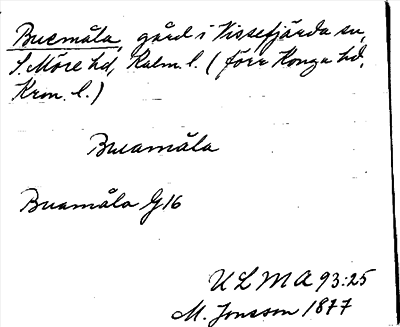 Buemåla, gård i Vissefjärda sn,
S. Möre hd, Kalm. l. (förr Konga hd,
Kron. l.)
Buamåla
Buamåla G16
ULMA 93:25
M. Jonsson 1877